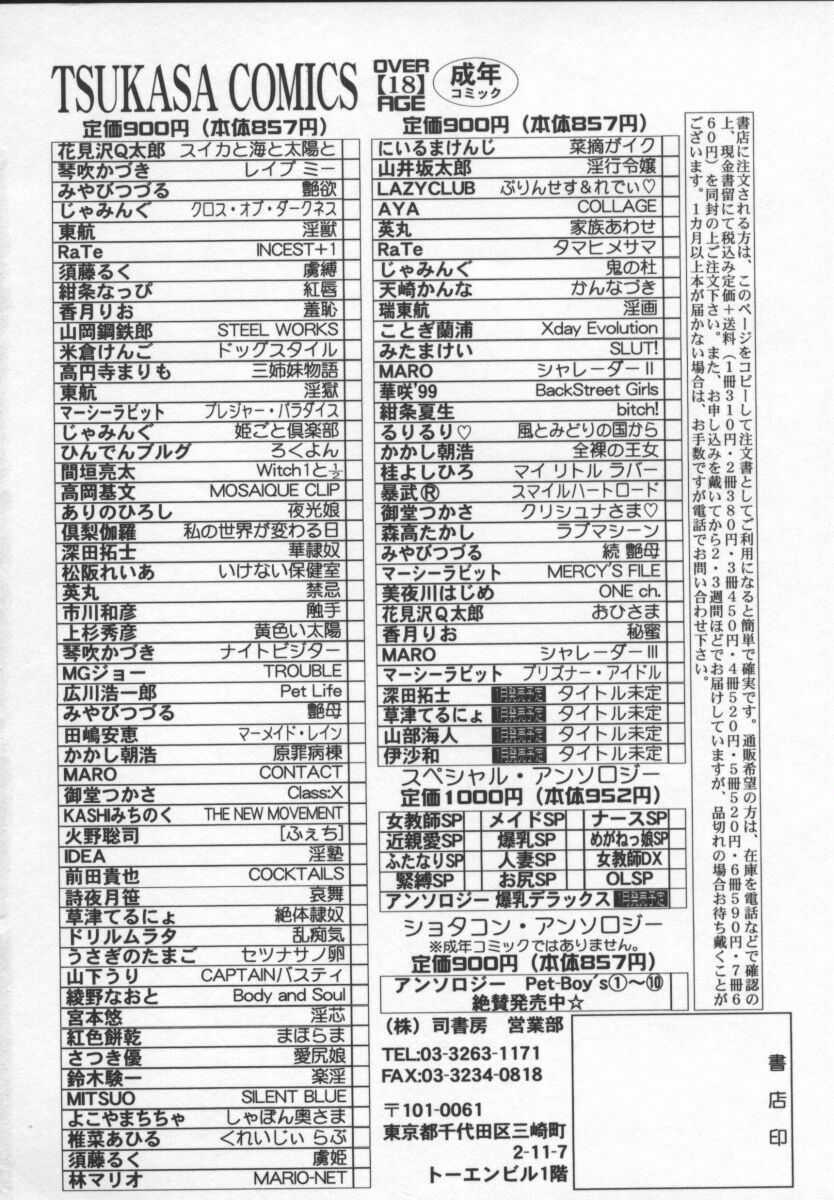 TSUKASA COMICS
OVER
【18】
AGE
成年
コミック
定価900円（本体857円）
花見沢Q太郎 スイカと海と太陽と
琴吹かづき レイプ ミー
みやびつづる 艶欲
じゃみんぐ クロス・オブ・ダークネス
東航 淫獣
RaTe INCEST+1
須藤るく 虜縛
紺条なっぴ 紅唇
香月りお 羞恥
山岡鋼鉄郎 STEEL WORKS
米倉けんご ドッグスタイル
高円寺まりも 三姉妹物語
東航 淫獄
マーシーラビット プレジャー・パラダイス
じゃみんぐ 姫ごと倶楽部
ひんでんブルグ ろくよん
間垣亮太 Witch1と½
高岡基文 MOSAIQUE CLIP
ありのひろし 夜光娘
倶梨伽羅 私の世界が変わる日
深田拓士 華隷奴
松阪れいあ いけない保健室
英丸 禁忌
市川和彦 触手
上杉秀彦 黄色い太陽
琴吹かづき ナイトビジター
MGジョー TROUBLE
広川浩一郎 Pet Life
みやびつづる 艶母
田嶋安恵 マーメイド・レイン
かかし朝浩 原罪病棟
MARO CONTACT
御堂つかさ Class:X
KASHIみちのく THE NEW MOVEMENT
火野聡司 ［ふぇち］
IDEA 淫塾
前田貴也 COCKTAILS
詩夜月笹 哀舞
草津てるにょ 絶体隷奴
ドリルムラタ 乱痴気
うさぎのたまご セツナサノ卵
山下うり CAPTAINバスティ
綾野なおと Body and Soul
宮本悠 淫芯
紅色餅乾 まほらま
さつき優 愛尻娘
鈴木験一 楽淫
MITSUO SILENT BLUE
よこやまちちゃ しゃぼん奥さま
椎菜あひる くれいじぃ らぶ
須藤るく 虜姫
林マリオ MARIO-NET
定価900円（本体857円）
にいるまけんじ 菜摘がイク
山井坂太郎 淫行令嬢
LAZYCLUB ぷりんせす&れでぃ♡
AYA COLLAGE
英丸 家族あわせ
RaTe タマヒメサマ
じゃみんぐ 鬼の杜
天崎かんな かんなづき
瑞東航 淫画
ことぎ蘭浦 Xday Evolution
みたまけい SLUT!
MARO シャレーダーⅡ
華咲'99 BackStreet Girls
紺条夏生 bitch!
るりるり♡ 風とみどりの国から
かかし朝浩 全裸の王女
桂よしひろ マイ リトル ラバー
暴武Ⓡ スマイルハートロード
御堂つかさ クリシュナさま♡
森高たかし ラブマシーン
みやびつづる 続 艶母
マーシーラビット MERCY'S FILE
美夜川はじめ ONE ch.
花見沢Q太郎 おひさま
香月りお 秘蜜
MARO シャレーダーⅢ
マーシーラビット プリズナー・アイドル
深田拓士 1月発売予定 タイトル未定
草津てるにょ 1月発売予定 タイトル未定
山部海人 1月発売予定 タイトル未定
伊沙和 1月発売予定 タイトル未定
スペシャル・アンソロジー
定価1000円（本体952円）
女教師SP メイドSP ナースSP
近親愛SP 爆乳SP めがねっ娘SP
ふたなりSP 人妻SP 女教師DX
緊縛SP お尻SP OLSP
アンソロジー 爆乳デラックス 1月発売予定
ショタコン・アンソロジー
※成年コミックではありません。
定価900円（本体857円）
アンソロジー Pet-Boy's①〜⑩
絶賛発売中☆
（株）司書房 営業部
TEL:03-3263-1171
FAX:03-3234-0818
〒101-0061
東京都千代田区三崎町
2-11-7
トーエンビル1階
書店印
書店に注文される方は、このページをコピーして注文書としてご利用になると簡単で確実です。通販希望の方は、在庫を電話などで確認の
上、現金書留にて税込み定価＋送料（1冊310円・2冊380円・3冊450円・4冊520円・5冊520円・6冊590円・7冊6
60円）を同封の上ご注文下さい。また、お申し込みを戴いてから2・3週間ほどでお届けしていますが、品切れの場合お待ち戴くことが
ございます。1カ月以上本が届かない場合は、お手数ですが電話でお問い合わせ下さい。